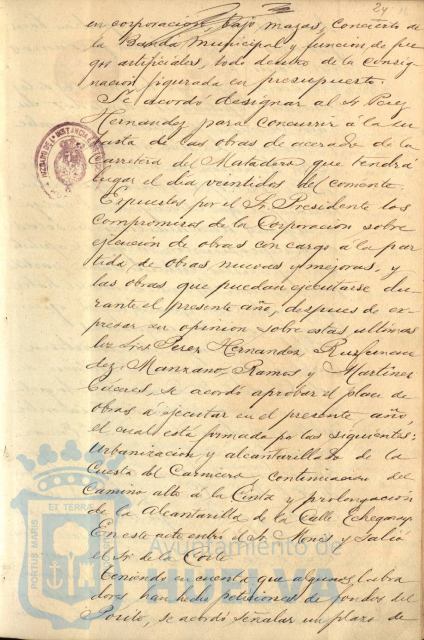 24
en corporación bajo mazas, Concierto de
la Banda Municipal y funcion de fue
gos artificiales, todo dentro de la consig
nacion figurada en presupuesto.
Se acordo designar al Sr Perez
Hernandez para concurrir á la su
basta de las obras de acerado de la
Carretera del Matadero que tendrá
lugar el dia veintidos del corriente.
Expuestos por el Sr. Presidente los
compromisos de la Corporacion sobre
ejecucion de obras con cargo á la par
tida de obras nuevas y mejoras, y
las obras que puedan ejecutarse du
rante el presente año, despues de ex
presar su opinion sobre estas ultimas
los Sres. Perez Hernandez,
dez, Manzano, Ramos y Martinez
Caceres, se acordó aprobar el plan de
obras a ejecutar en el presente año,
el cual está formado por las siguientes:
Urbanizacion y alcantarillado de la
Cuesta del Carnicero, continuacion del
Camino alto á la Cinta y prolongación
de la Alcantarilla de la Calle Echegaray.
En este acto entro el Sr. y Salió
el Sr. de la Corte
Teniendo en cuenta que algunos labra
dores han hecho peticiones de fondos del
Pósito, se acordó señalar un plazo de
PORTUS MARIS ET TERRAE
Ayuntamiento de
HUELVA